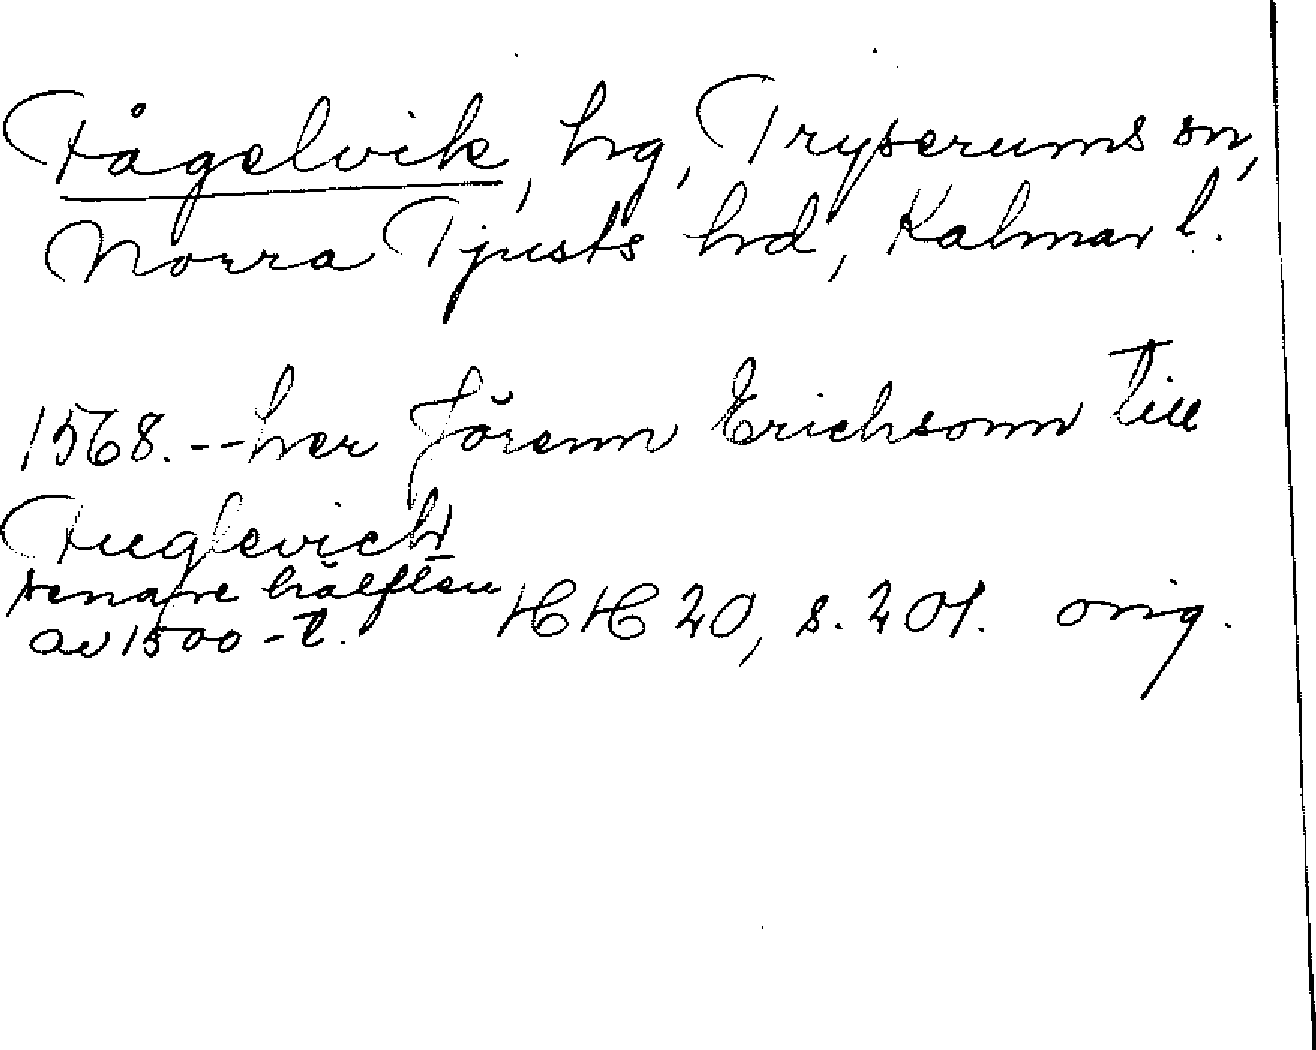 Fågelvik, hrg, Tryserums sn,
Norra Tjusts hrd, Kalmar l.
1568. -- her Jörenn Erichsonn till
Fuglevich
senare hälften
av 1500-t. HH 20, s. 201. orig.